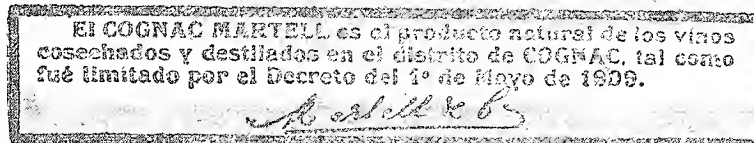 El COGNAC MARTELL es el producto natural de los vinos
cosechados y destilados en el distrito de COGNAC, tal como
fué limitado por el Decreto del 1º de Mayo de 1909.
Martell & Cº